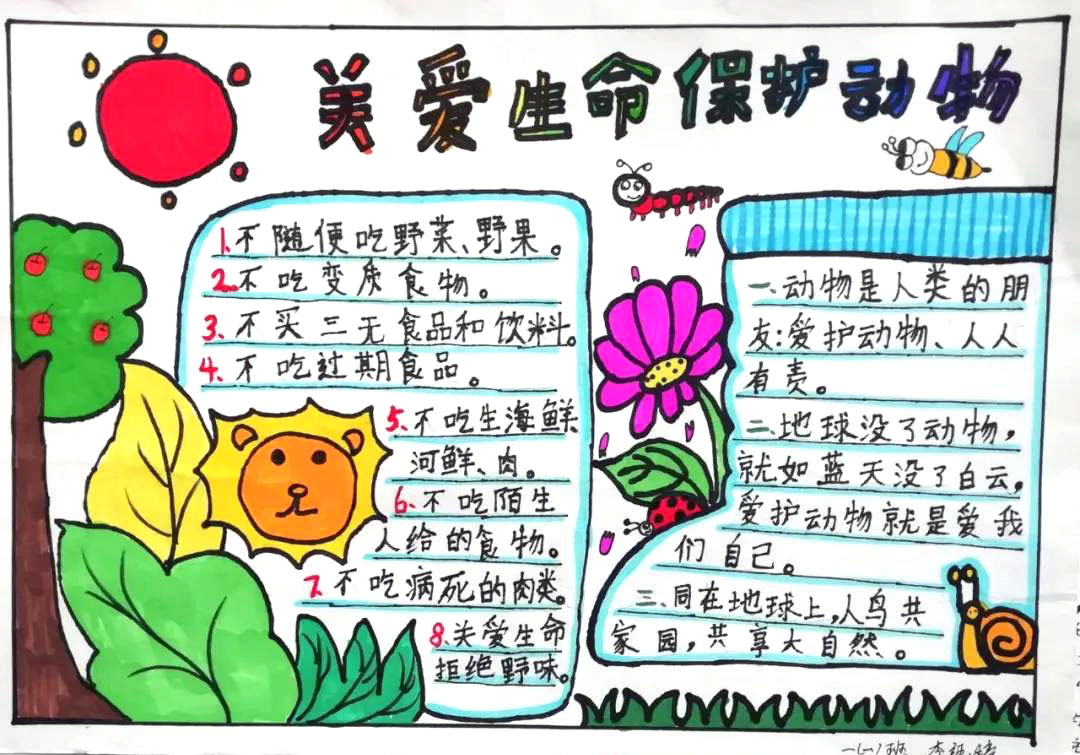 关爱生命保护动物
1.不随便吃野菜、野果。
2.不吃变质食物。
3.不买三无食品和饮料。
4.不吃过期食品。
5.不吃生海鲜
河鲜、肉。
6.不吃陌生
人给的食物。
7.不吃病死的肉类。
8.关爱生命
拒绝野味。
一、动物是人类的朋
友:爱护动物、人人
有责。
二、地球没了动物,
就如蓝天没了白云,
爱护动物就是爱我
们自己。
三、同在地球上,人鸟共
家园,共享大自然。